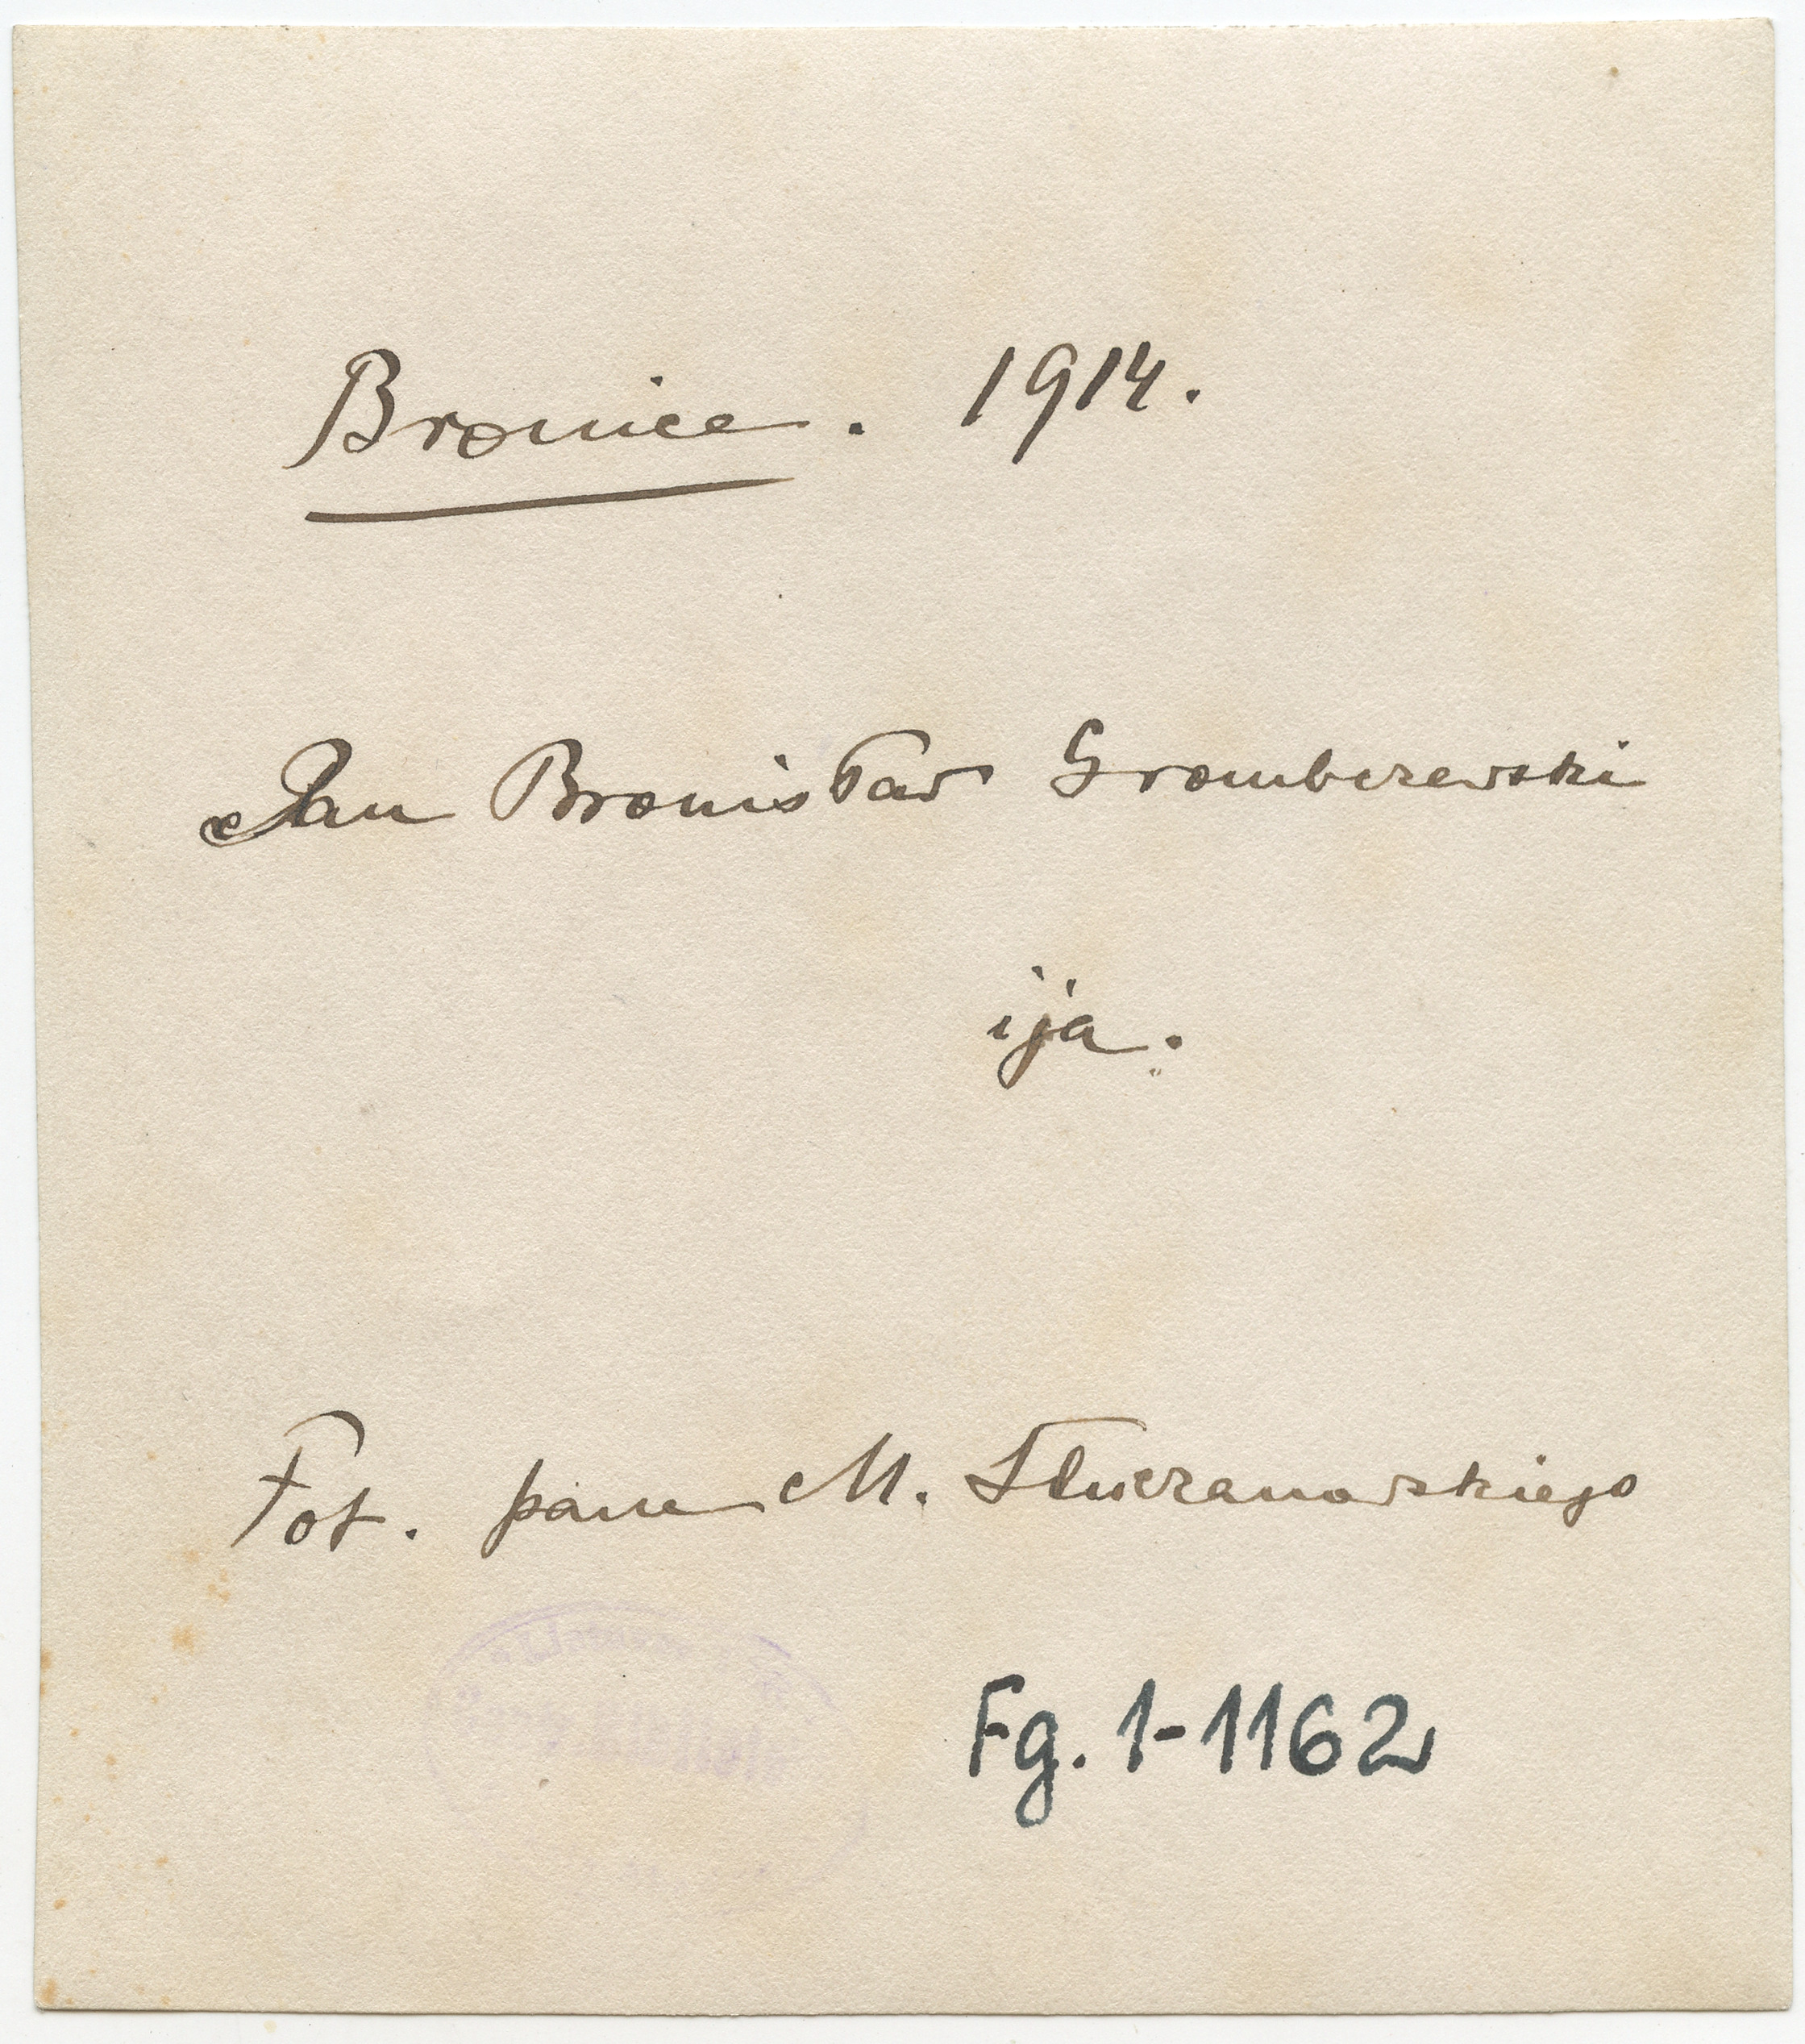 Bronice. 1914.
Pan Bronisław Grombczewski
i ja.
Fot. pana M. Tłuczanowskiego
Fg. 1-1162